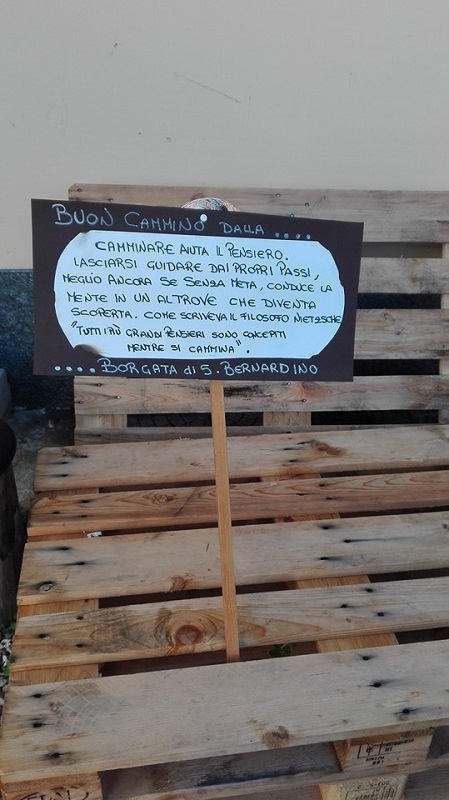 BUON CAMMINO DALLA ....
CAMMINARE AIUTA IL PENSIERO.
LASCIARSI GUIDARE DAI PROPRI PASSI,
MEGLIO ANCORA SE SENZA META, CONDUCE LA
MENTE IN UN ALTROVE CHE DIVENTA
SCOPERTA. COME SCRIVEVA IL FILOSOFO NIETZSCHE
"TUTTI I PIÙ GRANDI PENSIERI SONO CONCEPITI
MENTRE SI CAMMINA".
.... BORGATA di S. BERNARDINO